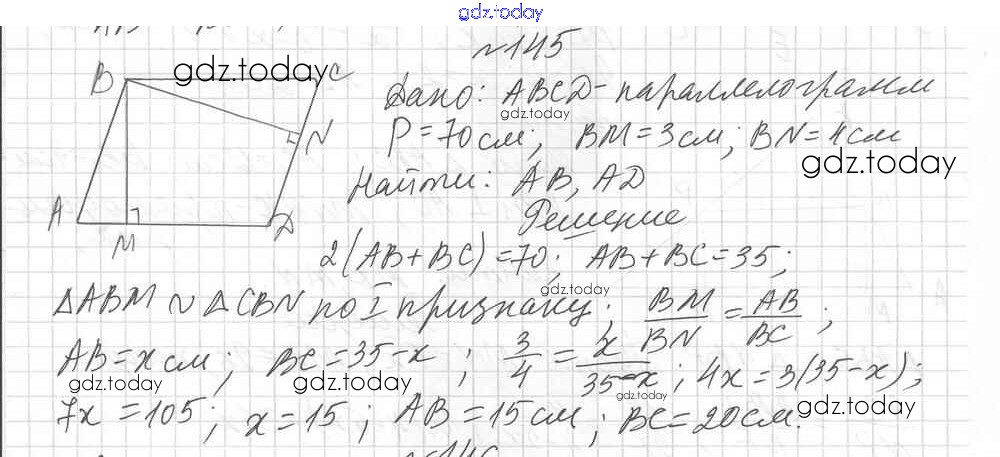 gdz.today
№145
B gdz.today C
Дано: ABCD - параллелограмм
gdz.today
P = 70 см; BM = 3 см; BN = 4 см
N
gdz.today
Найти: AB, AD
A M D
Решение
2(AB + BC) = 70; AB + BC = 35;
gdz.today
△ABM ∾ △CBN по I признаку; BM/BN = AB/BC;
AB = x см; BC = 35 - x; 3/4 = x/35-x; 4x = 3(35 - x);
gdz.today gdz.today gdz.today
7x = 105; x = 15; AB = 15 см; BC = 20 см.
gdz.today